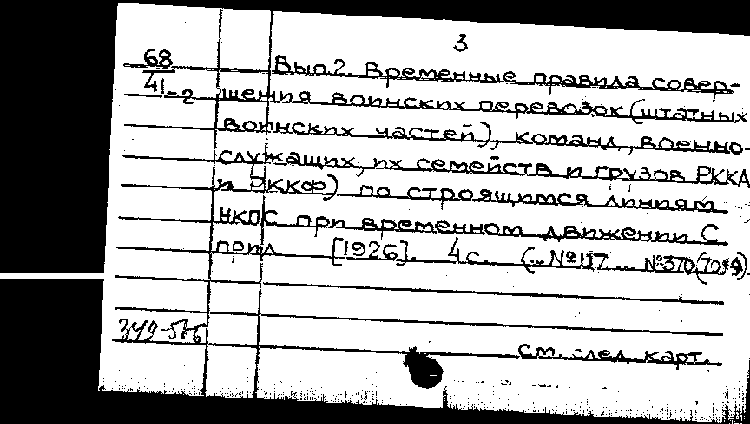 3
68 Вып.2. Временные правила совер-
41-2 шения воинских перевозок (штатных
воинских частей), команд, военно-
служащих, их семейств и грузов РККА
и РККФ) по строящимся линиям
НКПС при временном движении С
прил [1926]. 4с. (...№117... №370(
см. след. карт.